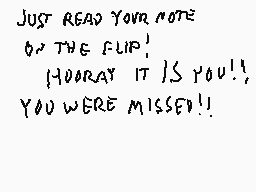 JUST READ YOUR NOTE
ON THE FLIP!
HOORAY IT IS YOU!!
YOU WERE MISSED!!